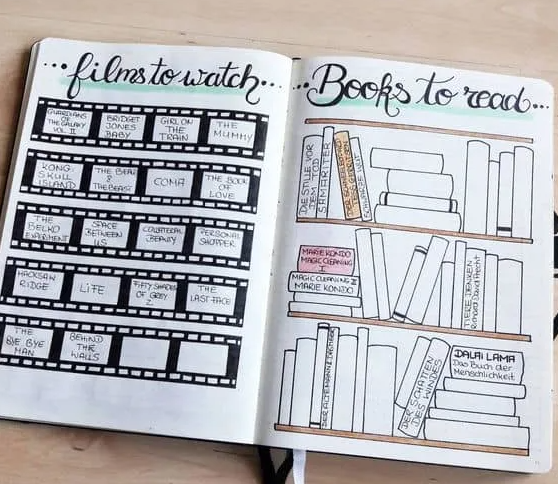 ...films to watch...
GUARDIANS
OF
THE GALAXY
VOL. II
BRIDGET
JONES
BABY
GIRL ON
THE
TRAIN
THE
MUMMY
KONG:
SKULL
ISLAND
THE BEAST
&
THE BEAST
COMA
THE BOOK
OF
LOVE
THE
BELKO
EXPERIMENT
SPACE
BETWEEN
US
COLLATERAL
BEAUTY
PERSONAL
SHOPPER
HACKSAW
RIDGE
LIFE
FIFTY SHADES
OF GREY
2
THE
LAST FACE
THE
BYE BYE
MAN
BEHIND
THE
WALLS
...Books to read...
DIE STILLE VOR
DEM TOD
SAMARITER
MARIE KONDO
MAGIC CLEANING
I
MAGIC CLEANING 2
MARIE KONDO
TIERE DENKEN
Richard David Precht
DER SCHATTEN
DES WINDES
DALAI LAMA
Das Buch der
Menschlichkeit